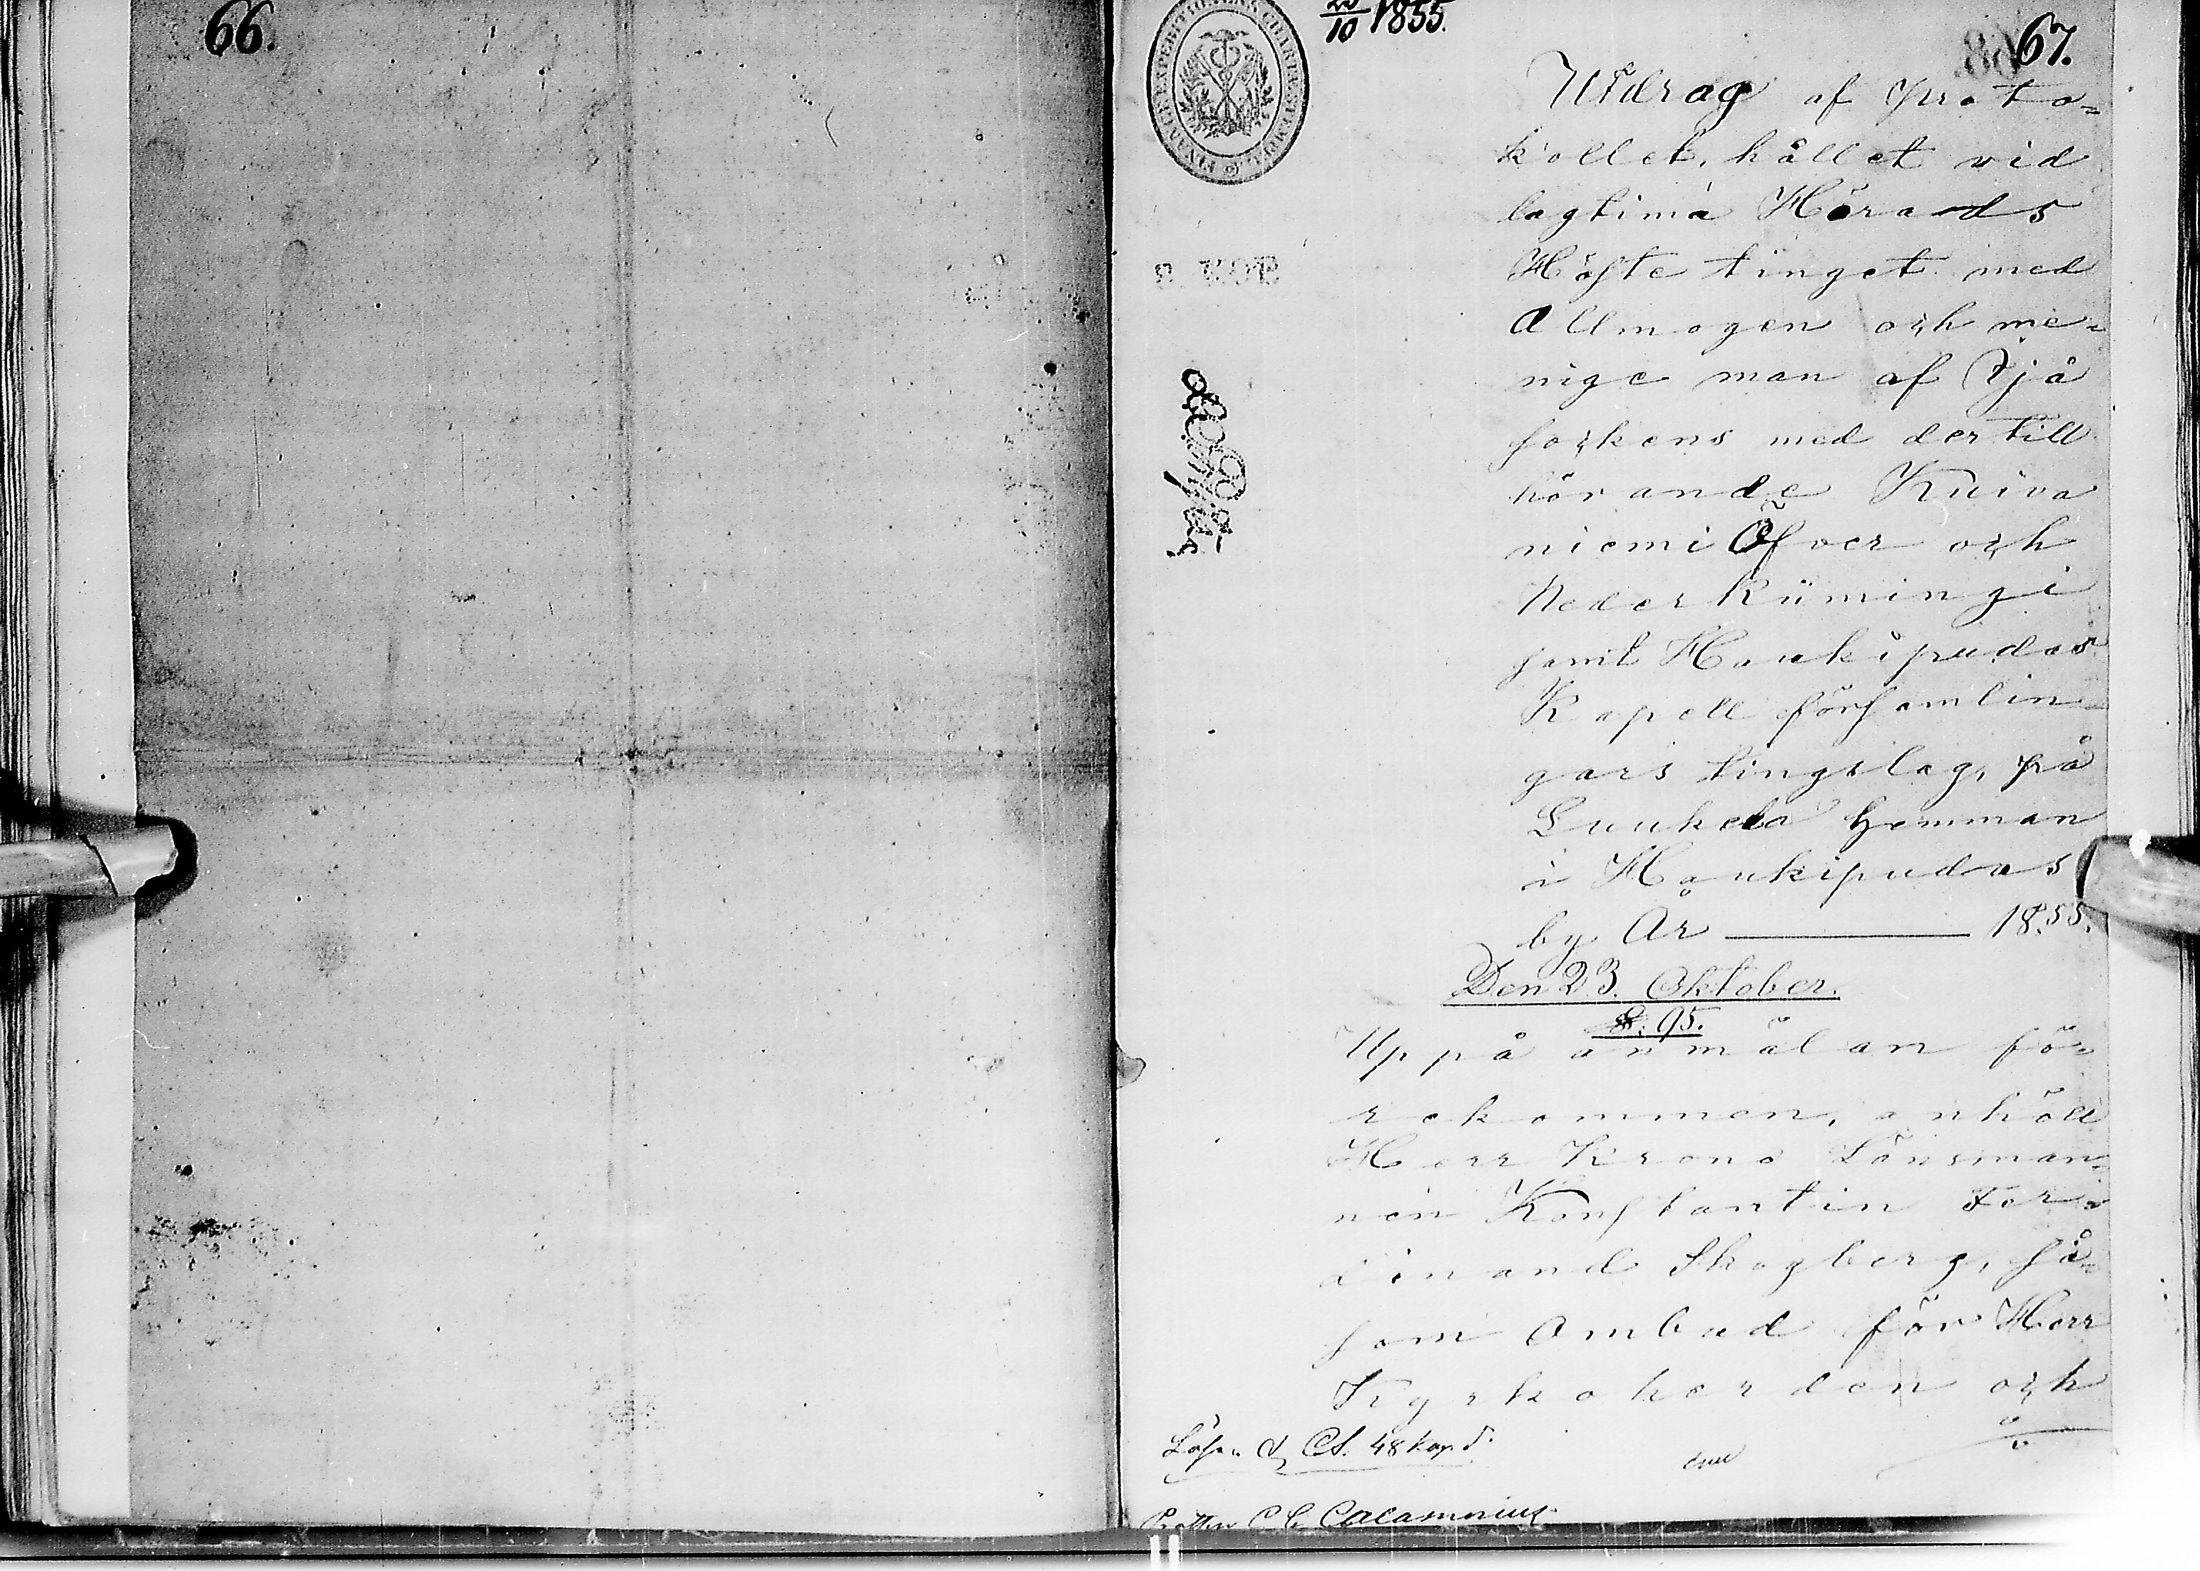 66.
10 1855.
67.
Utdrag af Proto=
kollet, hållet vid
lagtima Härads
Höste tinget med
Allmogen och me=
nige man af Ijå
sockens med der till
hörande Kuiva
niemi Öfver och
Neder Kiimingi
samt Haukipudas
Kapell församlin
gars tingslag, på
Luukela hemman
i Haukipudas
by År 1855.
Den 23. Oktober.
§. 95.
Uppå anmälan fö=
rekommen, anhöll
Herr Krono Länsman=
nen Konstantin Fer=
dinand Skogberg, så=
som Ombud för Herr
Kyrkoherden och
Lösen 48 kop S.
Calamnius